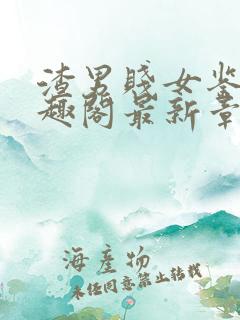 渣男賤女鉴
趣阁最新章
海產物
未任同意禁止转载